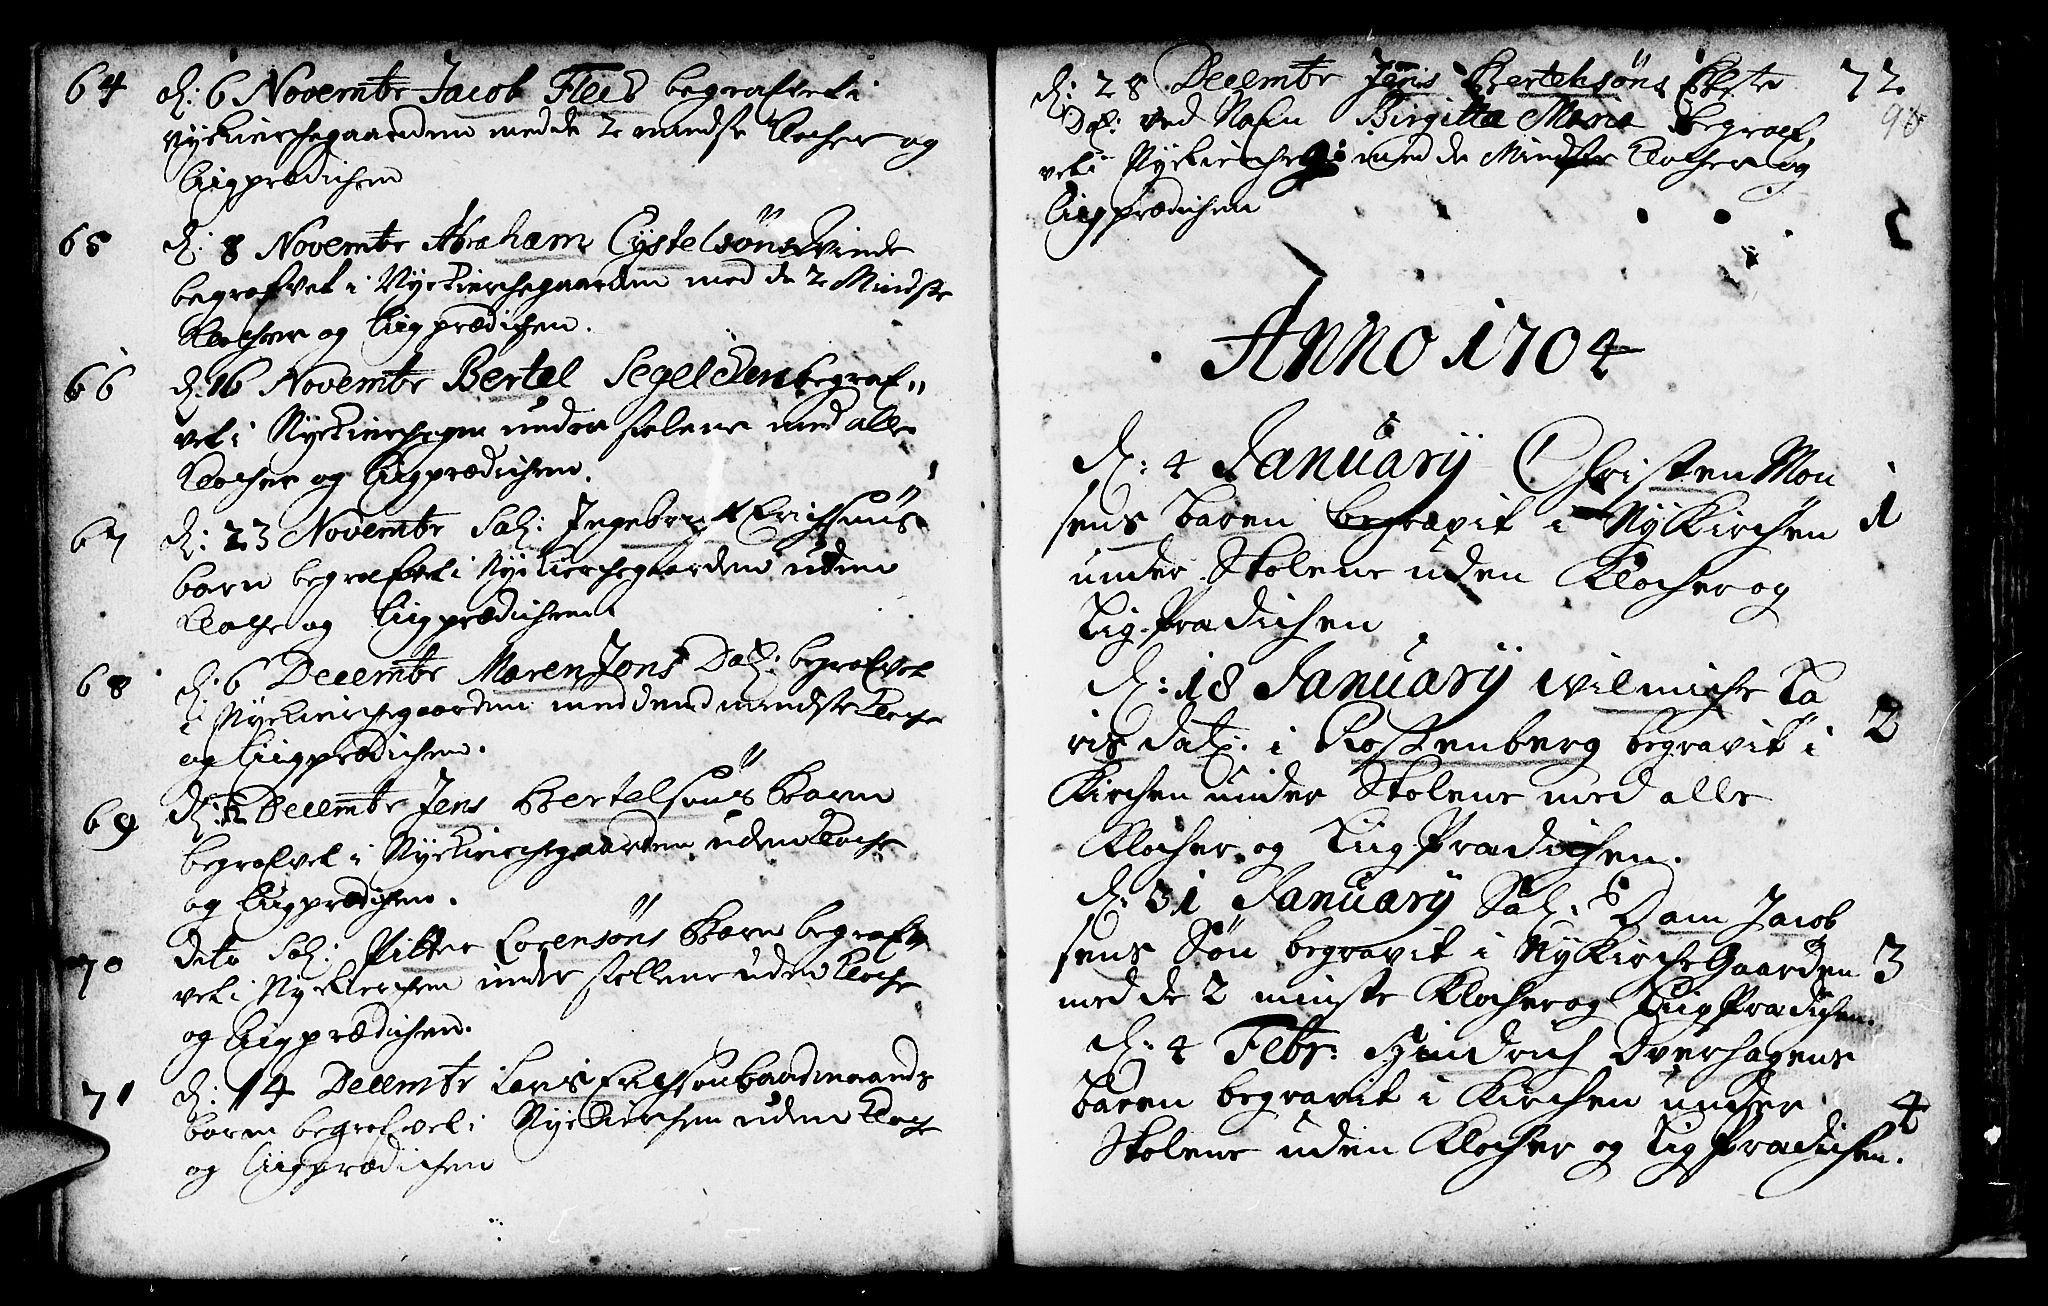 64 d: 6 Novembr Jacob Flecs begrafvet i
Nyekierchegaarden med de 2 mindste Klocher og
Liigprædichen
65 d: 8 Novembr Abraham Cÿstelsöns Kvinde
begrafvet i Nyekierchegaarden med de 2 Mindste
Klocher og Liigprædichen.
66 d: 16 Novembr Bertel Segelcken begraf„
vet i Nyekierchegen under stolene med alle
Klocher og Liigprædichen.
67 d: 23 Novembr Sal: Ingebret Erichsöns
barn begrafvet i Nyekierchegaarden uden
Kloche og Liigprædichen.
68 d: 6 Decembr Maren Jons Datr: begrafvet
i Nyekierchegaarden med dend mindste Kloche
og Liigprædichen.
69 d: 12 Decembr Jens Bertelsöns Barn
begrafvet i Nyekierchegaarden uden Kloche
og Liigprædichen.
70 dito Sal: Pitter Lorensöns Barn begraf„
vet i Nyekierchen under stollene uden Kloche
og Liigprædichen.
71 d: 14 Decembr Laris Erichson Baadmaands
barn begrafvet i Nyekierchen uden Kloche
og Liigprædichen
d: 28 Decembr Jens Bertelsöns 72
Datr: ved Nafn Birgitta Maria begraf„ 98
vet i Nyekierchen med de Mindste Klocher og
Liigprædichen
Anno 1704
d: 4 Januarÿ Christen Mon
sens Baren begravit i NyKirchen 1
under Stolene uden Klocher og
Lig Prædichen
d: 18 Januarÿ Wilmiche La
ris datr: i Rostenberg begravit i 2
Kirchen under Stolene med alle
Klocher og Liig Prædichen.
d: 31 Januarÿ Sal: Dam Jacob
sens Sön begravit i NyKirche Gaarden 3
med de 2 minste Klocher og Liig Prædichen.
d: 4 Febr: Hindrich Overhagens
Baren begravit i Kirchen under 4
Stolene uden Klocher og Lig Prædichen.